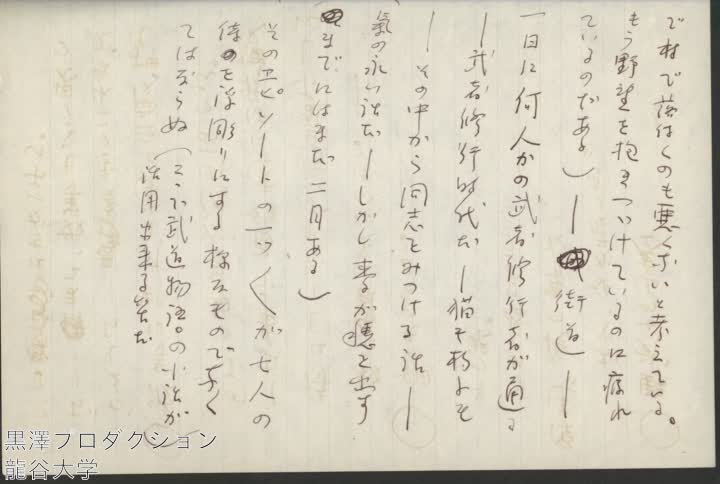 で村で落付くのも悪くないと考えている。
もう野望を抱きつづけているのに疲れ
ているのである）― 街道 ―
一日に何人かの武者修行者が通る
― 武者修行時代だ ― 猫も杓子も
― その中から同志をみつける話 ―
氣の永い話だ ― しかし麦が穂を出す
までにはまだ二月ある）
そのエピソードの一つ〱が七人の
侍を浮彫りにする様なものでなく
てはならぬ（こゝに武道物語の小話が
活用出来る筈だ）
黒澤プロダクション
龍谷大学